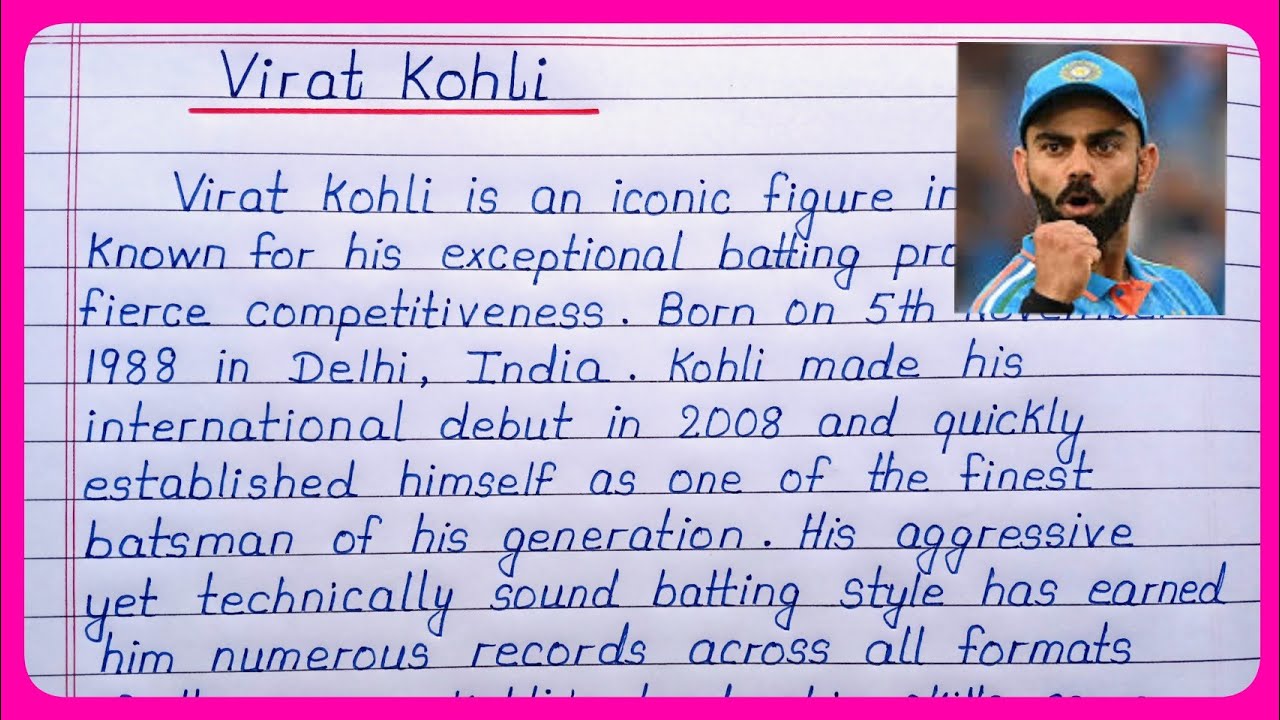 Virat Kohli
Virat Kohli is an iconic figure in
Known for his exceptional batting
fierce competitiveness. Born on 5th November
1988 in Delhi, India. Kohli made his
international debut in 2008 and quickly
established himself as one of the finest
batsman of his generation. His aggressive
yet technically sound batting style has earned
him numerous records across all formats